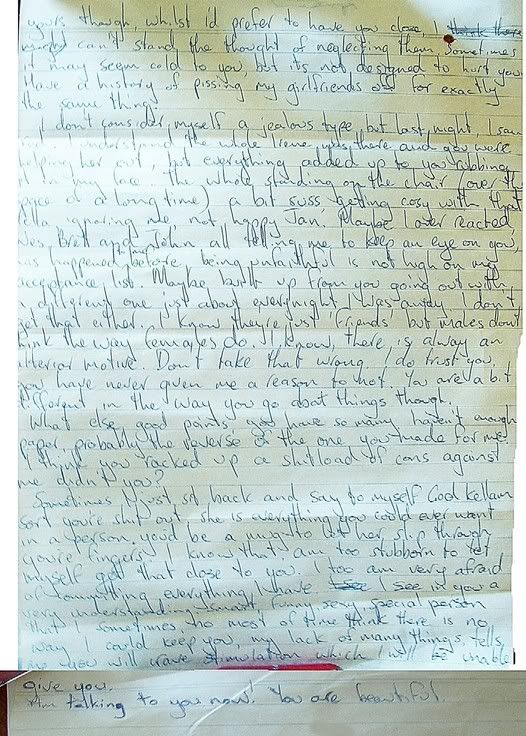 yours though, whilst I'd prefer to have you close, I think there
can't stand the thought of neglecting them. Sometimes
it may seem cold to you, but it's not designed to hurt you
Have a history of pissing my girlfriends off for exactly
the same thing.
I don't consider myself a jealous type but last night, I saw
I understand the whole Irene was there and you were
helping her out, but everything added up to you rubbing
it in my face. The whole standing on the chair (over the
a long time) a bit suss getting cosy with that
ignoring me, not happy Jan. Maybe I over reacted
Wes, Brett and John all telling me to keep an eye on you,
has happened to me before being unfaithful is not high on my
acceptance list. Maybe built up from you going out with
a different one just about everynight I was away. I don't
get that either. I know they're just 'friends' but males don't
think the way females do. I know, there is always an
ulterior motive. Don't take that wrong. I do trust you,
you have never given me a reason to not. You are a bit
different in the way you go about things though.
What else, good points, you have so many haven't enough
paper, probably the reverse of the one you made for me.
I think you racked up a shitload of cons against
me didn't you?
Sometimes I just sit back and say to myself God Kellam
sort you're shit out she is everything you could ever want
in a person. you'd be a mug to let her slip through
you're fingers. I know that I am too stubborn to let
myself get that close to you. I too am very afraid
of everything I have. I see I see in you a
very understanding smart funny sexy special person
that I sometimes, no most of time think there is no
way I could keep you, my lack of many things, tells
me you will crave stimulation which I will be unable
give you.
I'm talking to you now! You are beautiful.